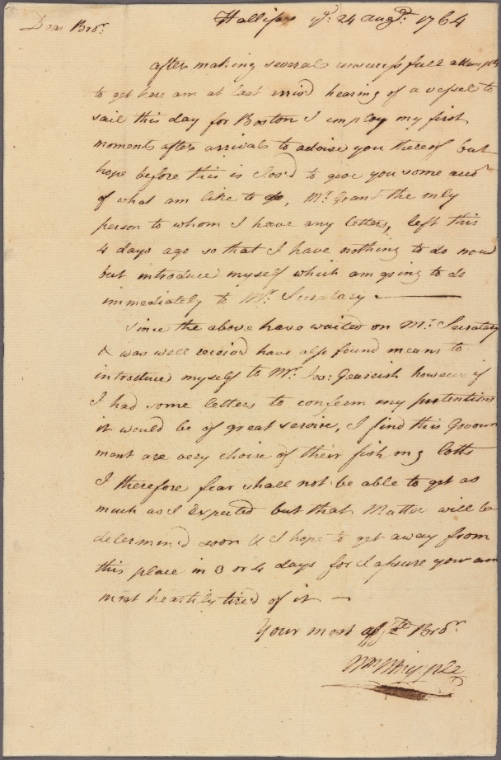 Hallifax ye. 24 augt. 1764
Dear Bror.
after making several unsuccessfull attempts
to get here am at last arriv'd hearing of a vessel to
sail this day for Boston I employ my first
moments after arrival to advise you thereof but
hope before this is clos'd to give you some acct
of what am like to do, Mr. Grant the only
person to whom I have any letters, left this
4 days ago so that I have nothing to do now
but introduce myself which am going to do
immediately to Mr. Secratary
Since the above have waited on Mr. Secratary
& was well receivd have also found means to
introduce myself to Mr. Jos: Gerrish however if
I had some letters to confirm my pretentions
it would be of great service, I find this Goverm
ment are very choice of their fishing lotts
I therefore fear shall not be able to get as
much as I Expected but that Matter will be
determin'd soon & I hope to get away from
this place in 3 or 4 days for I assure you am
most heartily tired of it —
Your most aff.te Bror.
Wm Whipple